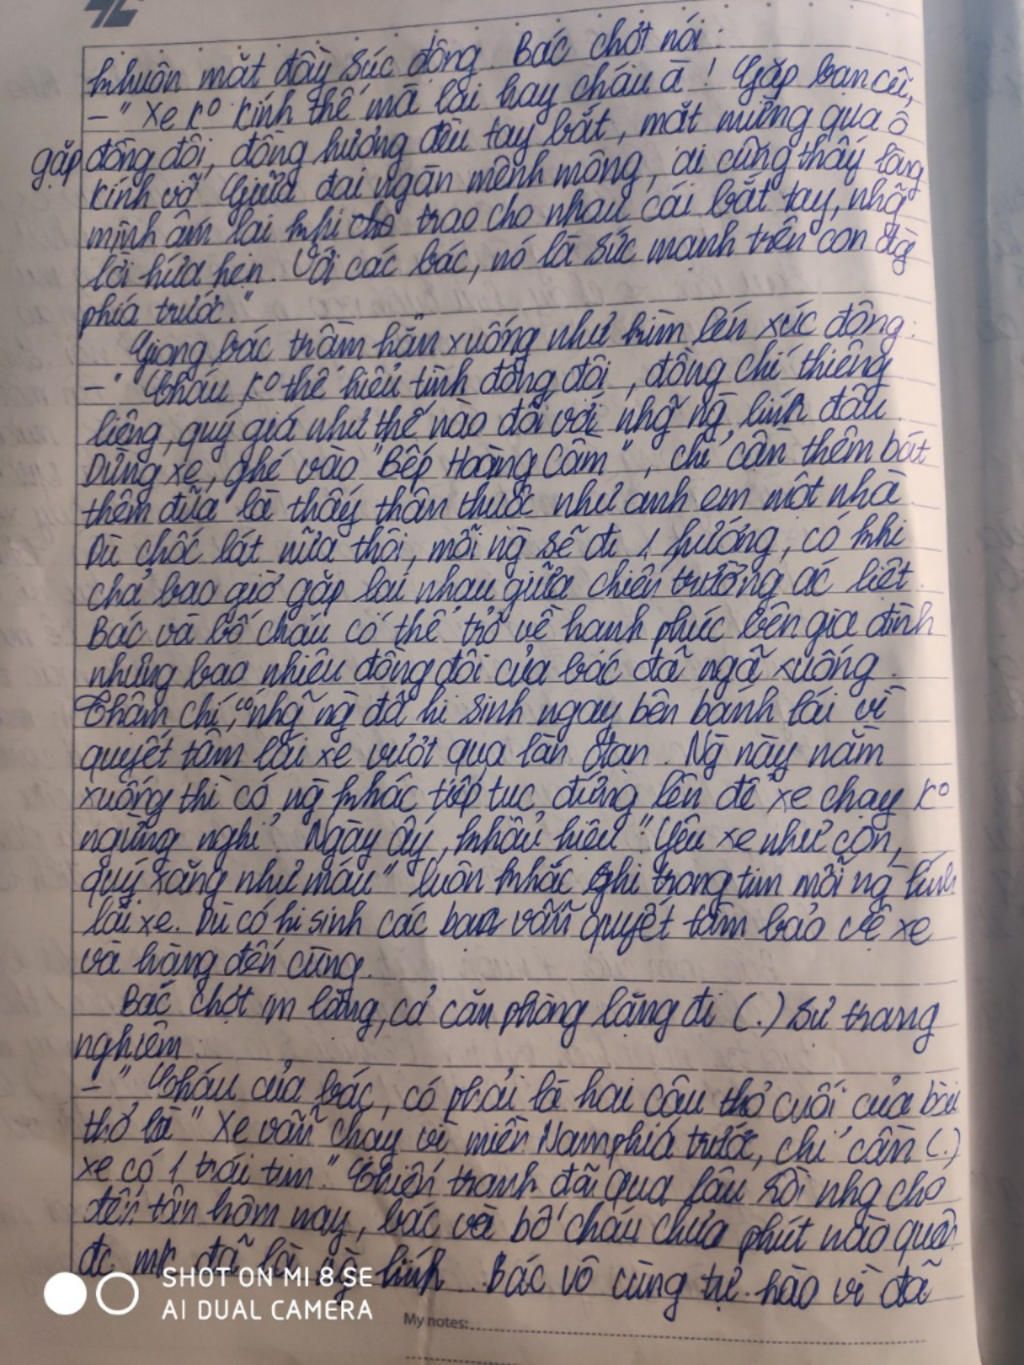 khuôn mặt đầy sức đông. Bác chợt nói:
– "Xe ko kính thế mà lại hay cháu à! Gặp bạn cũ,
gặp đồng đội, đồng hương đều tay bắt, mặt mừng qua ô
kính vỡ. Giữa đại ngàn mênh mông, ai cũng thấy lòng
mình ấm lại khi trao cho nhau cái bắt tay, nhg
lời hứa hẹn. Với các bác, nó là sức mạnh trên con đg
phía trước."
Giọng bác trầm hẳn xuống như kìm nén xúc động:
– "Cháu ko thể hiểu tình đồng đội, đồng chí thiêng
liêng, quý giá như thế nào đối với nhg ng lính đâu.
Dừng xe, ghé vào "Bếp Hoàng Cầm", chỉ cần thêm bát
thêm đũa là thấy thân thuộc như anh em một nhà.
Dù chốc lát nữa thôi, mỗi ng sẽ đi 1 hướng, có khi
chả bao giờ gặp lại nhau giữa chiến trường ác liệt.
Bác và bố cháu có thể trở về hạnh phúc bên gia đình
nhưng bao nhiêu đồng đội của bác đã ngã xuống.
Thậm chí, có nhg ng đã hi sinh ngay bên bánh lái vì
quyết tâm lái xe vượt qua làn đạn. Ng này nằm
xuống thì có ng khác tiếp tục đứng lên để xe chạy ko
ngừng nghỉ. Ngày ấy, khẩu hiệu "Yêu xe như con,
quý xăng như máu" luôn khắc ghi trong tim mỗi ng lính
lái xe. Dù có hi sinh các bác vẫn quyết tâm bảo vệ xe
và hàng đến cùng.
Bác chợt im lặng, cả căn phòng lặng đi (.) sự trang
nghiêm.
– "Cháu của bác, có phải là hai câu thơ cuối của bài
thơ là "Xe vẫn chạy vì miền Nam phía trước, chỉ cần (.)
xe có 1 trái tim." Chiến tranh đã qua lâu rồi nhg cho
đến tận hôm nay, bác và bố cháu chưa phút nào quên
đc mk đã là ng lính. Bác vô cùng tự hào vì đã
SHOT ON MI 8 SE
AI DUAL CAMERA
My notes: